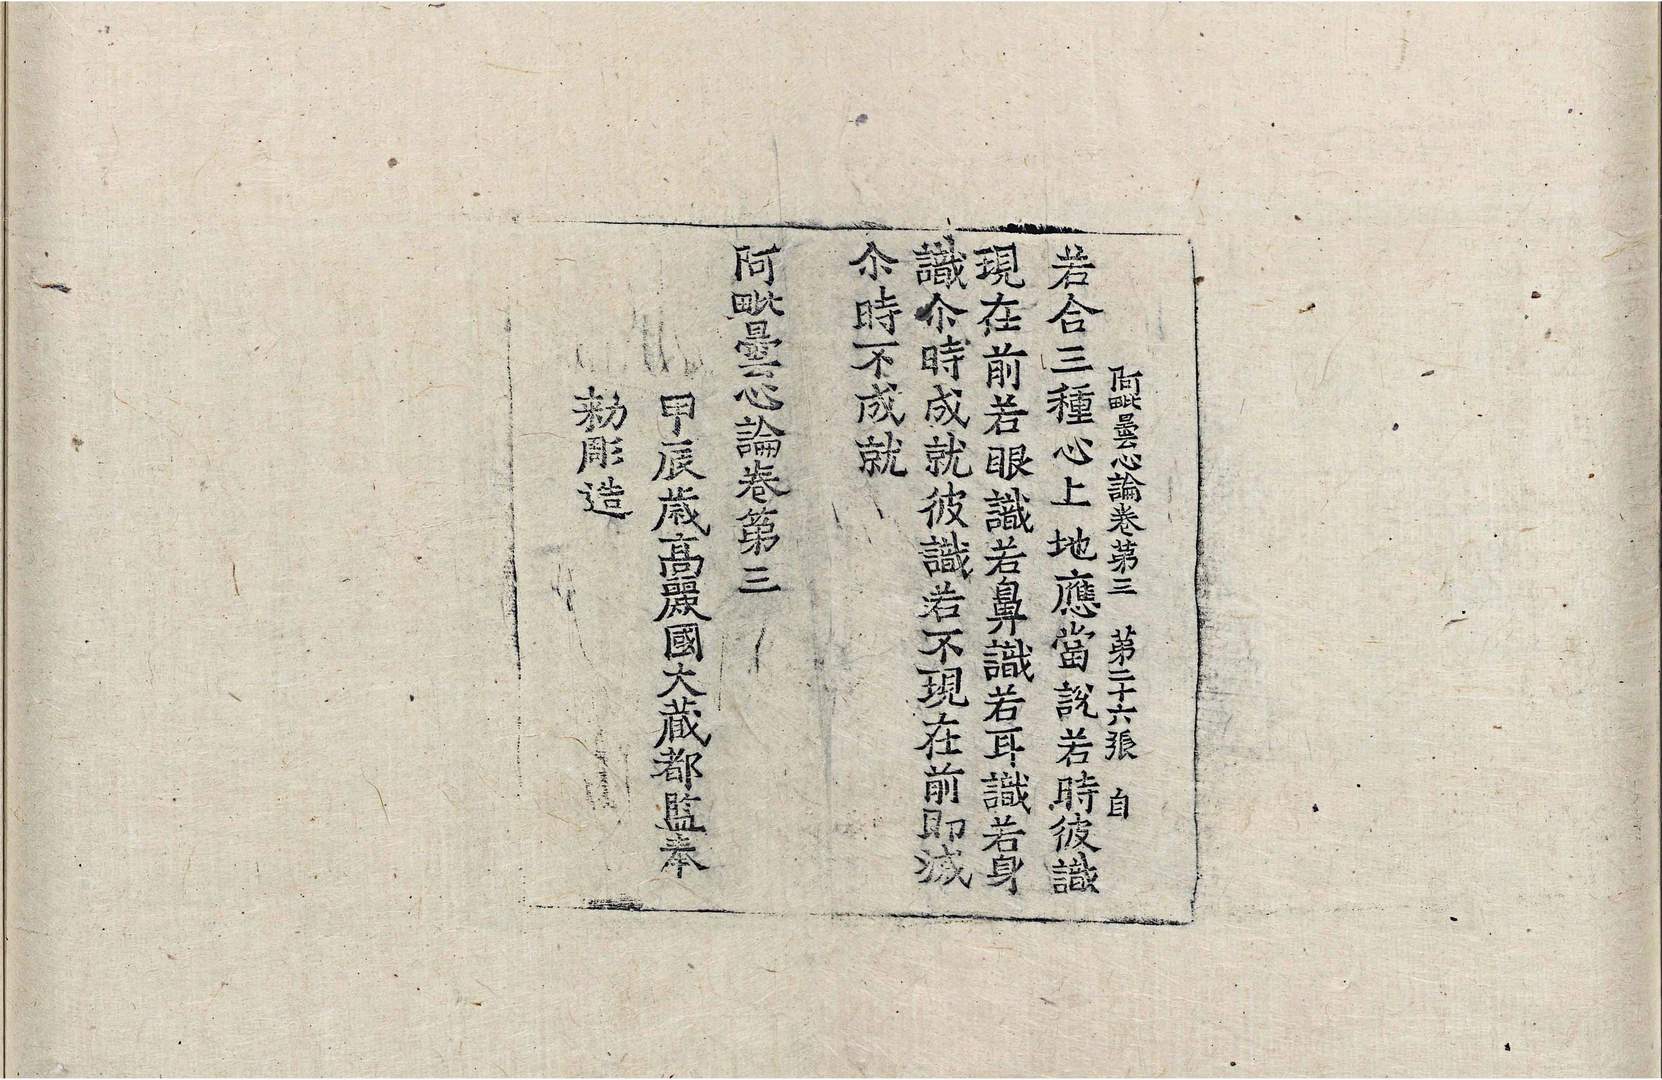 阿毗曇心論卷第三　第二十六張　自
若合三種心上地應當說若時彼識
現在前若眼識若鼻識若耳識若身
識尒時成就彼識若不現在前即滅
尒時不成就
阿毗曇心論卷第三
甲辰歲高麗國大藏都監奉
勑彫造